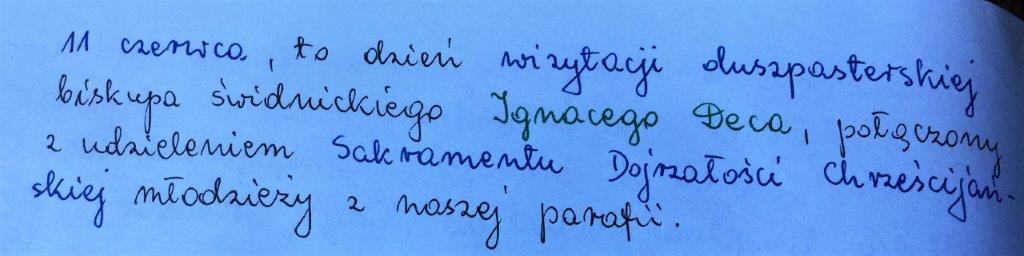 11 czerwca, to dzień wizytacji duszpasterskiej
biskupa świdnickiego Ignacego Deca, połączony
z udzieleniem Sakramentu Dojrzałości Chrześcijań-
skiej młodzieży z naszej parafii.